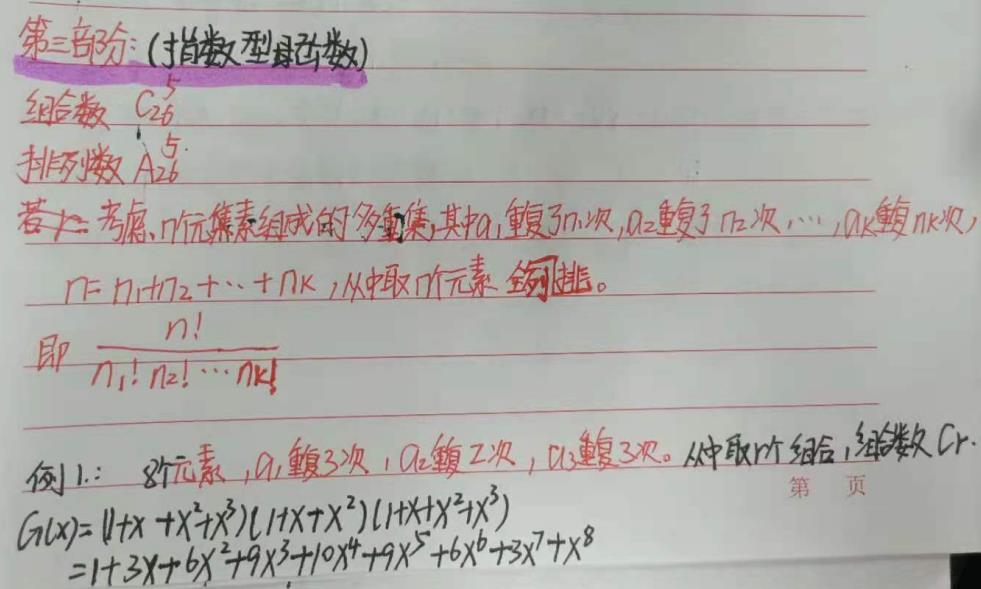 第三部分:(指数型母函数)
组合数 C₂₆⁵
排列数 A₂₆⁵.
考虑、n个元素组成的多重集,其中a₁重复了n₁次,a₂重复了n₂次,…,aₖ重复nₖ次,
n=n₁+n₂+…+nₖ,从中取n个元素 全排。
即 n!/(n₁!n₂!…nₖ!)
例1.: 8个元素,a₁重复3次,a₂重复2次,a₃重复3次。从中取r个组合,组合数Cr.
第 页
G(x)=(1+x+x²+x³)(1+x+x²)(1+x+x²+x³)
=1+3x+6x²+9x³+10x⁴+9x⁵+6x⁶+3x⁷+x⁸